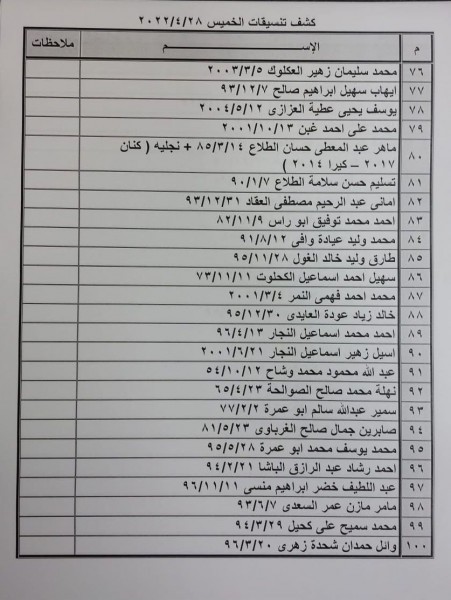 كشف تنسيقات الخميس ٢٠٢٢/٤/٢٨
م الإســـــم ملاحظات
٧٦ محمد سليمان زهير العكلوك ٢٠٠٣/٣/٥
٧٧ ايهاب سهيل ابراهيم صالح ٩٣/١٢/٧
٧٨ يوسف يحيى عطية العزازى ٢٠٠٤/٥/١٢
٧٩ محمد على احمد غبن ٢٠٠١/١٠/١٣
٨٠ ماهر عبد المعطى حسان الطلاع ٨٥/٣/١٤ + نجليه ( كنان
٢٠١٧ – كيرا ٢٠١٤ )
٨١ تسليم حسن سلامة الطلاع ٩٠/١/٧
٨٢ امانى عبد الرحيم مصطفى العقاد ٩٣/١٢/٣١
٨٣ احمد محمد توفيق ابو راس ٨٢/١١/٩
٨٤ محمد وليد عيادة وافى ٩١/٨/١٢
٨٥ طارق وليد خالد الغول ٩٥/١١/٢٨
٨٦ سهيل احمد اسماعيل الكحلوت ٧٣/١١/١١
٨٧ محمد احمد فهمى النمر ٢٠٠١/٣/٤
٨٨ خالد زياد عودة العايدى ٩٥/١٢/٣٠
٨٩ احمد محمد اسماعيل النجار ٩٦/٤/١٣
٩٠ اسيل زهير اسماعيل النجار ٢٠٠١/٦/٢١
٩١ عبد الله محمود محمد وشاح ٥٤/١٠/١٢
٩٢ نهلة محمد صالح الصوالحة ٦٥/٤/٢٣
٩٣ سمير عبدالله سالم ابو عمرة ٧٧/٢/٢
٩٤ صابرين جمال صالح الغرباوى ٨١/٥/٢٣
٩٥ محمد يوسف محمد ابو عمرة ٩٥/٥/٢٨
٩٦ احمد رشاد عبد الرازق الباشا ٩٤/٢/٢١
٩٧ عبد اللطيف خضر ابراهيم منسى ٩٦/١١/١١
٩٨ مامر مازن عمر السعدى ٩٣/٦/٧
٩٩ محمد سميح على كحيل ٩٤/٣/٢٩
١٠٠ وائل حمدان شحدة زهرى ٩٦/٣/٢٠